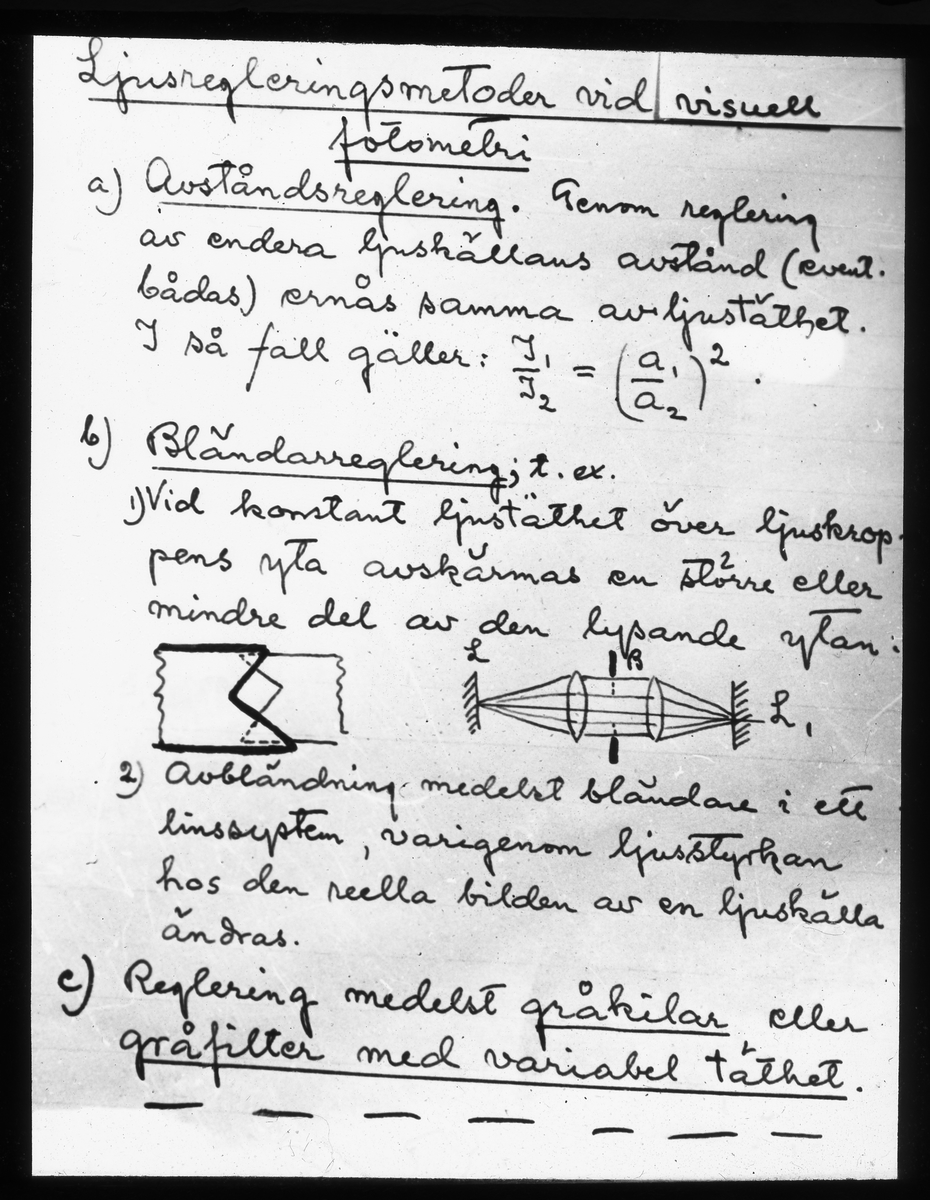 Ljusregleringsmetoder vid visuell
fotometri
a) Avståndsreglering. Genom reglering
av endera ljuskällans avstånd (event.
bådas) ernås samma av ljustäthet.
I så fall gäller: I₁/I₂ = (a₁/a₂)² .
b) Bländarreglering; t. ex.
1) Vid konstant ljustäthet över ljuskrop-
pens yta avskärmas en större eller
mindre del av den lysande ytan:
L B
L₁
2) Avbländning medelst bländare i ett
linssystem, varigenom ljusstyrkan
hos den reella bilden av en ljuskälla
ändras.
c) Reglering medelst gråkilar eller
gråfilter med variabel täthet.